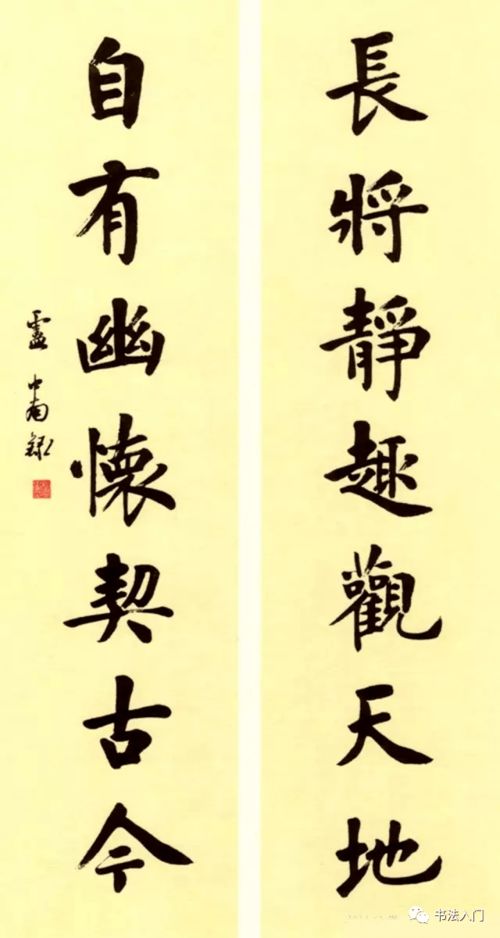 長將靜趣觀天地
自有幽懷契古今
书法入门